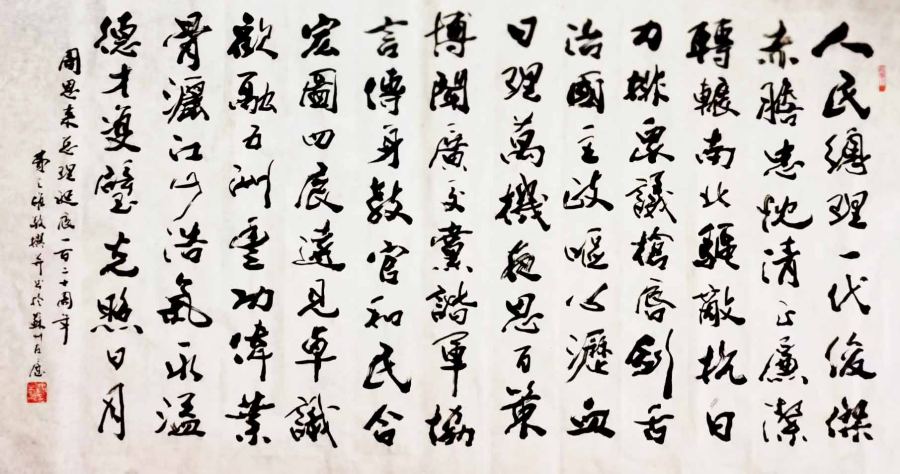 人民總理一代俊傑
赤膽忠忱清正廉潔
轉輾南北驅敵抗日
力排衆議槍唇劍舌
治國主政嘔心瀝血
日理萬機夜思百策
博聞廣交黨諧軍協
言傳身教官和民合
宏圖四展遠見卓識
歡融五洲豐功偉業
骨灑江山浩氣永溢
德才雙璧光照日月
周恩來總理誕辰一百二十周年
敬撰并書於蘇州